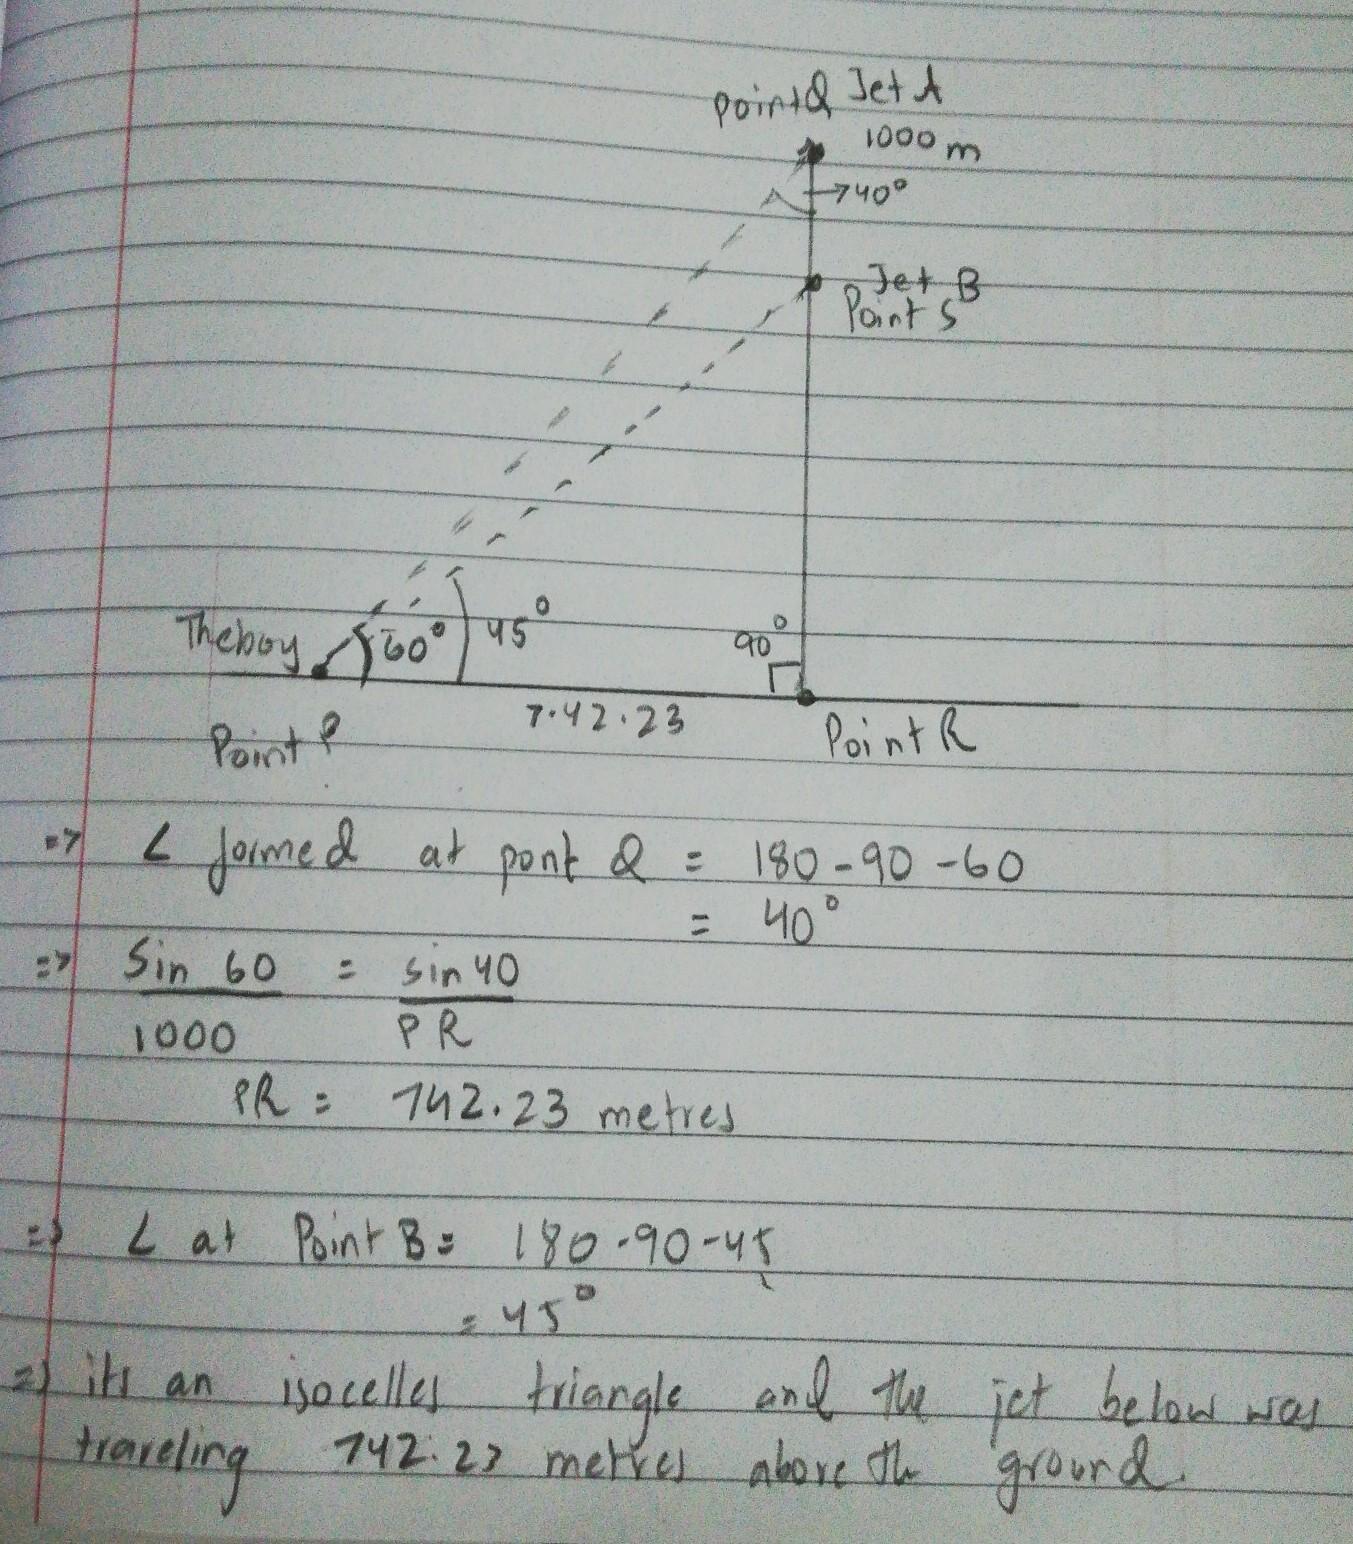 Point Q Jet A
1000 m
→40°
Jet B
Point S
The boy 60° 45° 90°
7.42.23
Point P Point R
=> ∠ formed at pont Q = 180-90-60
= 40°
=> Sin 60 = sin 40
1000 PR
PR = 742.23 metres
=> ∠ at Point B = 180-90-45
= 45°
=> its an isocelles triangle and the jet below was
traveling 742.23 metres above the ground.